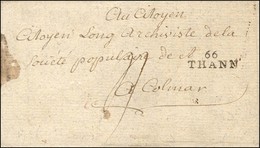 Au Citoyen
Citoyen Long Archiviste de la
Société populaire de
66
THANN
a Colmar